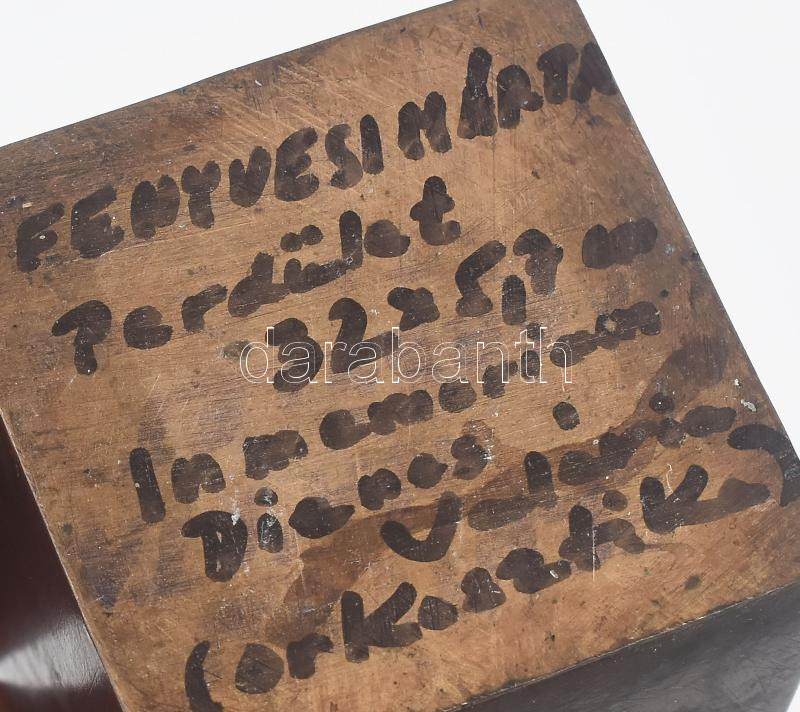 FENYVESI MÁRTA
Perdület
32x5,7 cm
In memoriam
Dienes Valéria
(orkesztika)
darabanth